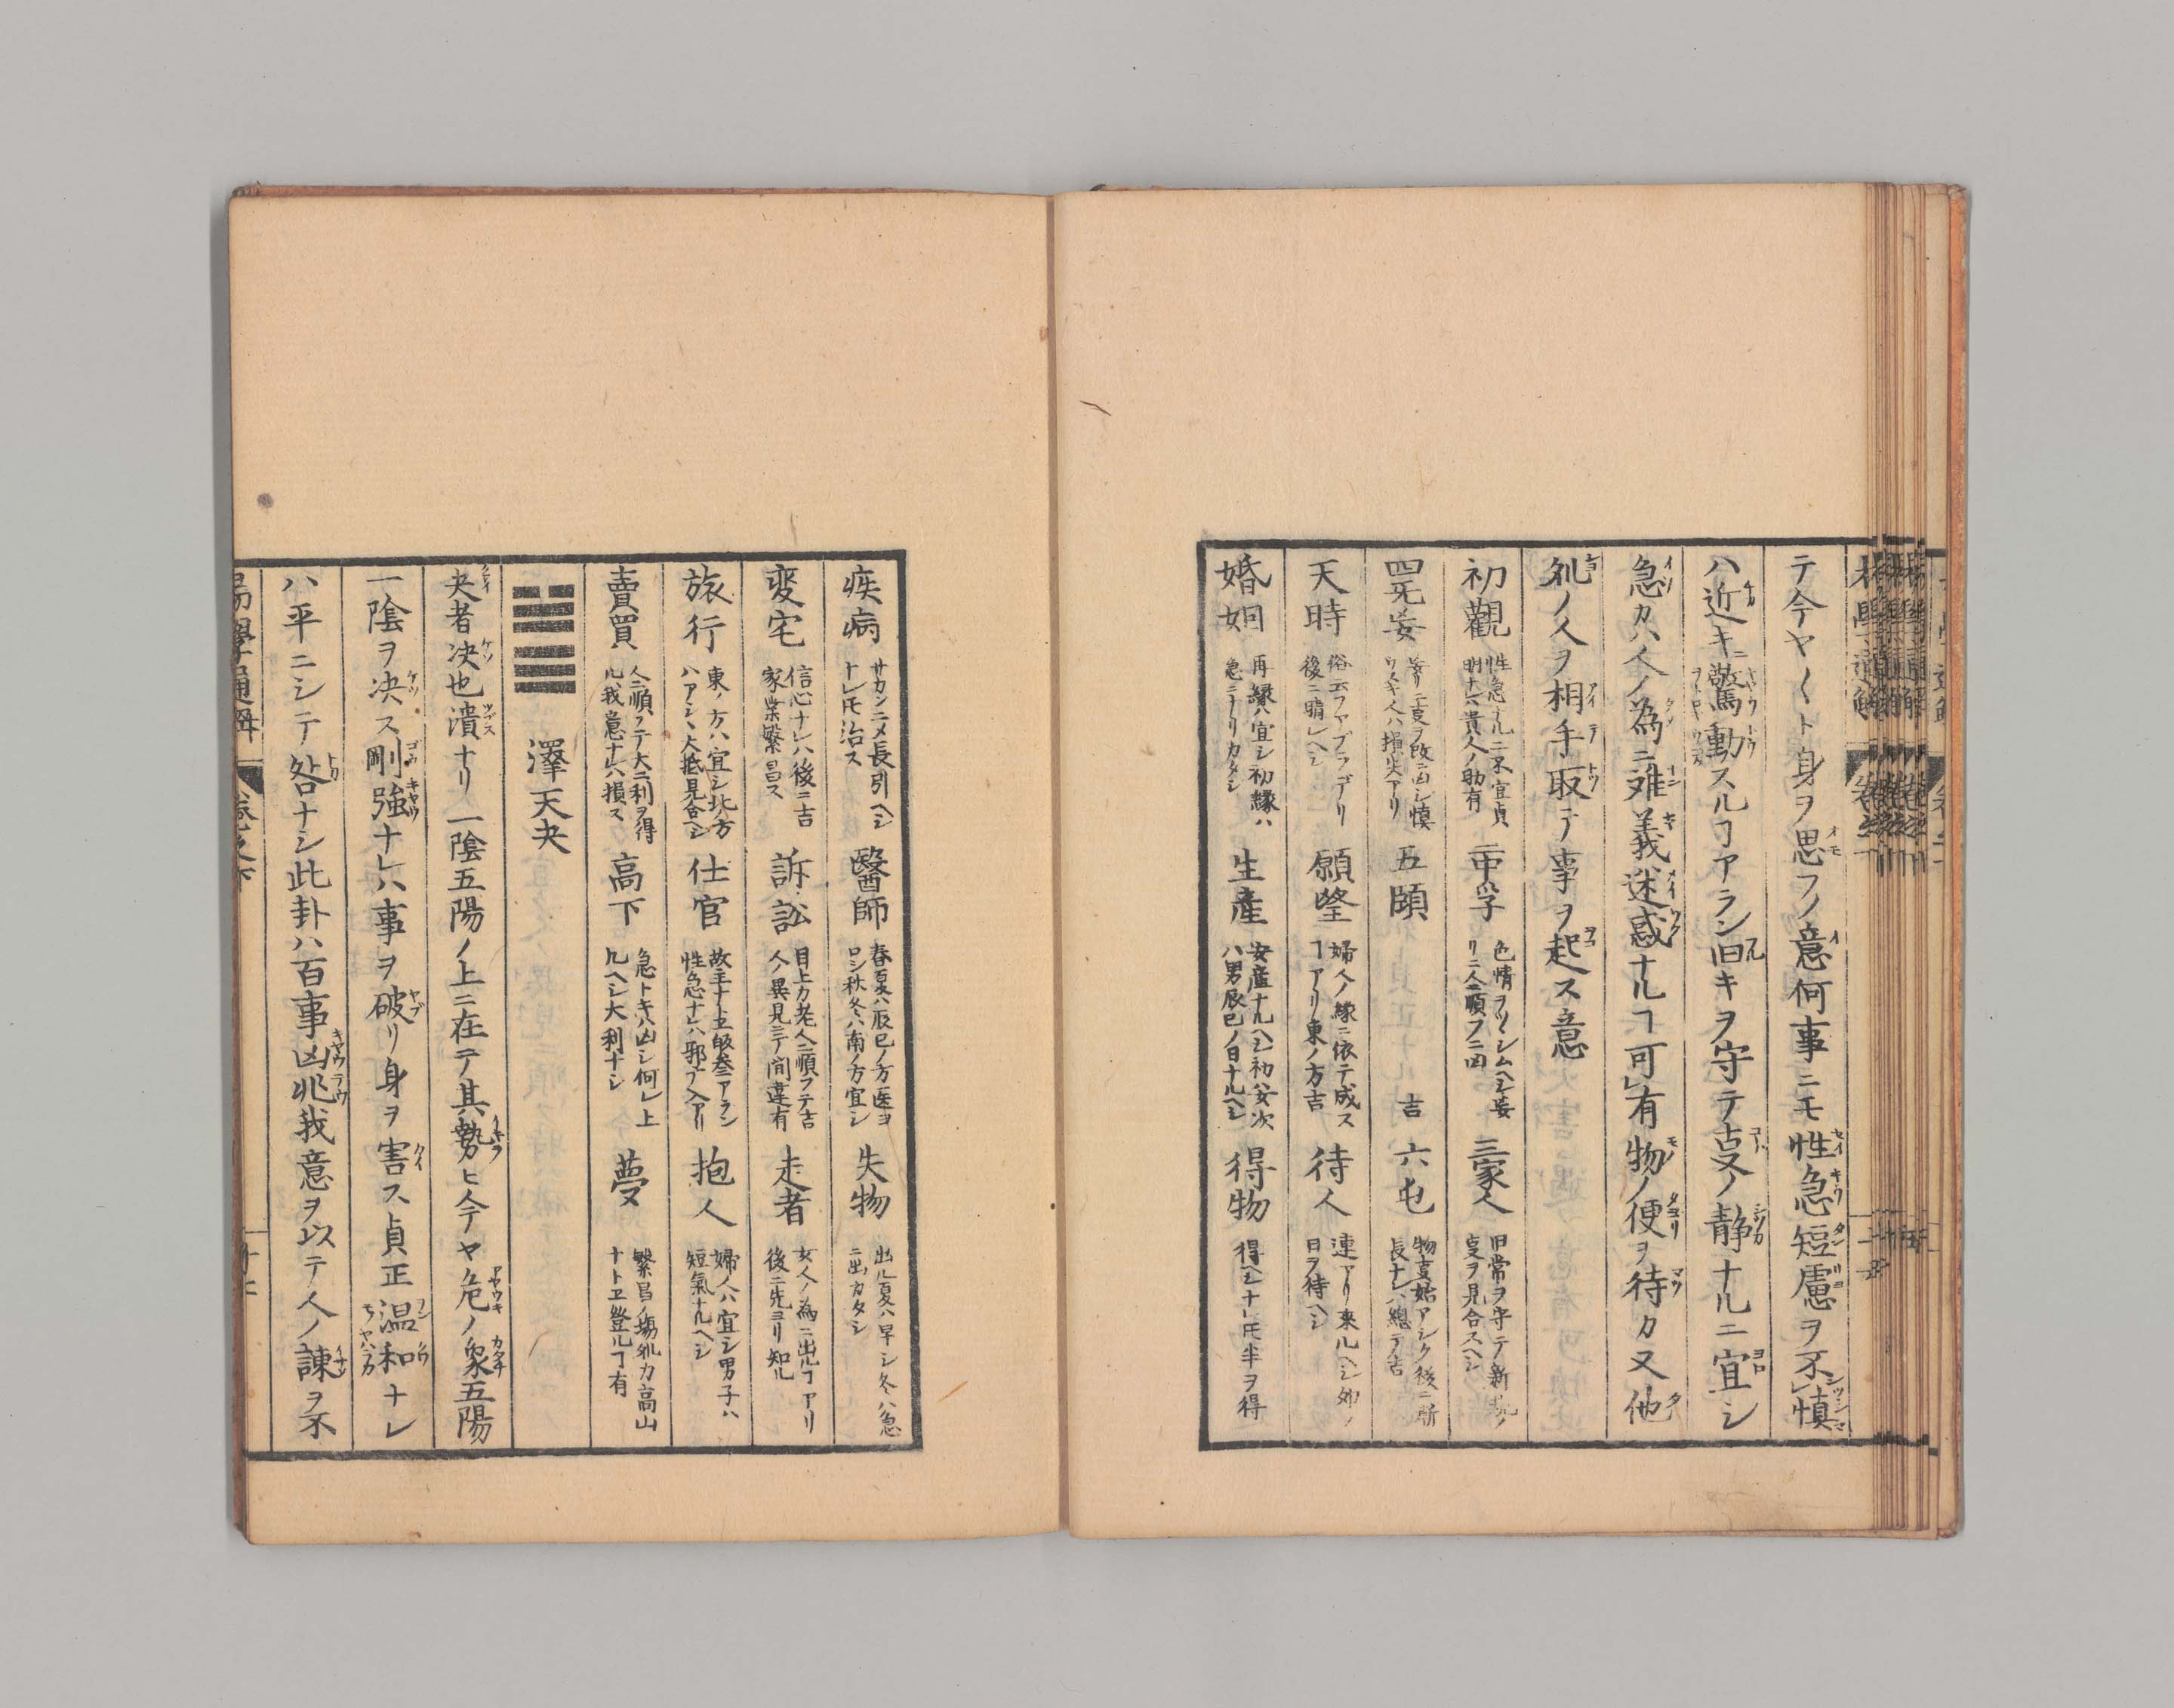 テ今ヤ〱ト身ヲ思フノ意何事ニモ性急短慮ヲ不慎
ハ近キニ驚動スルヿアラン旧キヲ守テ叓ノ静ナルニ宜シ
急カハ人ノ為ニ難義迷惑ナルヿ可有物ノ便ヲ待カ又他
ノ人ヲ相手取テ事ヲ起ス意
初觀
性急ナルニ不宜貞
明ナハ貴人ノ助有
二中孚
色情ヲツヽシムヘシ妄
リニ人ニ順フニ凶
三家人
旧常ヲ守テ新規ノ
叓ヲ見合スヘシ
四无妄
妄リニ叓ヲ改ニ凶シ慎
ウスキ人ハ損失アリ
五頤
吉
六屯
物叓始アシク後ニ所
長ナレハ總テ吉
天時
後ニ晴レヘシ
願望
婦人ノ縁ニ依テ成ス
ヿアリ東ノ方吉
待人
連アリ来ルヘシ卯ノ
日ヲ待ヘシ
婚姻
再縁ハ宜シ初縁ハ
急ニナリカタシ
生産
安産ナルヘシ初ハ女次
ハ男辰巳ノ日ナルヘシ
得物
得ヘシナレ𪜈半ヲ得
疾病
サカンニ〆長引ヘシ
ナレ𪜈治ス
醫師
春夏ハ辰巳ノ方医ヨ
ロシ秋冬ハ南ノ方宜シ
失物
出ル夏ハ早シ冬ハ急
ニ出カタシ
変宅
信心ナレハ後ニ吉
家業繁昌ス
訴訟
目上カ老人ニ順フテ吉
人ノ異見ニテ間違有
走者
女人ノ為ニ出ルヿアリ
後ニ先ヨリ知ル
旅行
東ノ方ハ宜シ北方
ハアシヽ大抵見合ヘシ
仕官
性急ナレハ邪ヿ入アリ
抱人
婦人ハ宜シ男子ハ
短氣ナルヘシ
賣買
人ニ順フテ大ニ利ヲ得
ル我意ナレハ損ス
高下
急トキハ凶シ何レ上
ルヘシ大利ナシ
夢
繁昌ノ場所カ高山
ナトエ登ルヿ有
澤天夬
夬者决也潰ナリ一陰五陽ノ上ニ在テ其勢ヒ今ヤ危ノ象五陽
一陰ヲ决ス剛強ナレハ事ヲ破リ身ヲ害ス貞正温和ナレ
ハ平ニシテ咎ナシ此卦ハ百事凶兆我意ヲ以テ人ノ諌ヲ不
易學通解